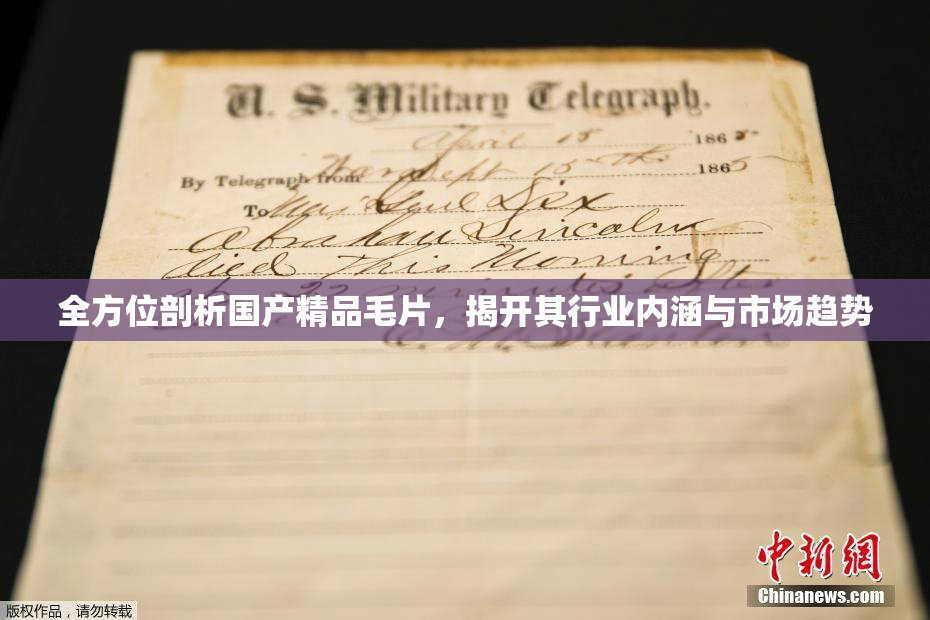 U. S. Military Telegraph.
April 15 1865
By Telegraph from War Dept 15th 1865
To Maj Genl Dix
Abraham Lincoln
died This Morning
at 22 minutes after
全方位剖析国产精品毛片，揭开其行业内涵与市场趋势
E. M. Stanton
中新网
Chinanews.com
版权作品，请勿转载